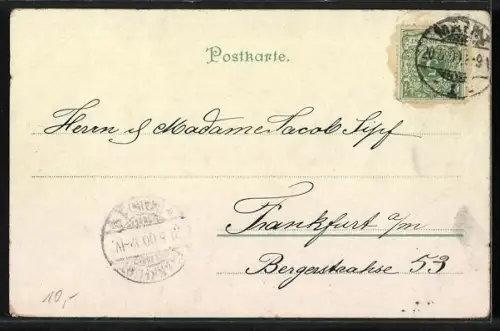 Postkarte.
MAINZ
Herrn & Madame Jacob Sipf
Frankfurt a/m
Bergerstrahse 53
10,-